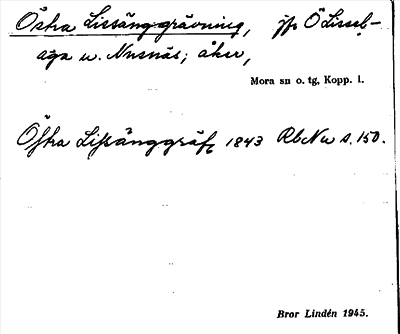 Östra Lissänggrävning, jfr Ö Lissel-
aga u. Nusnäs; åker,
Mora sn o. tg, Kopp. l.
Östra Lissänggräf, 1843 Rb Nu s. 150.
Bror Lindén 1945.